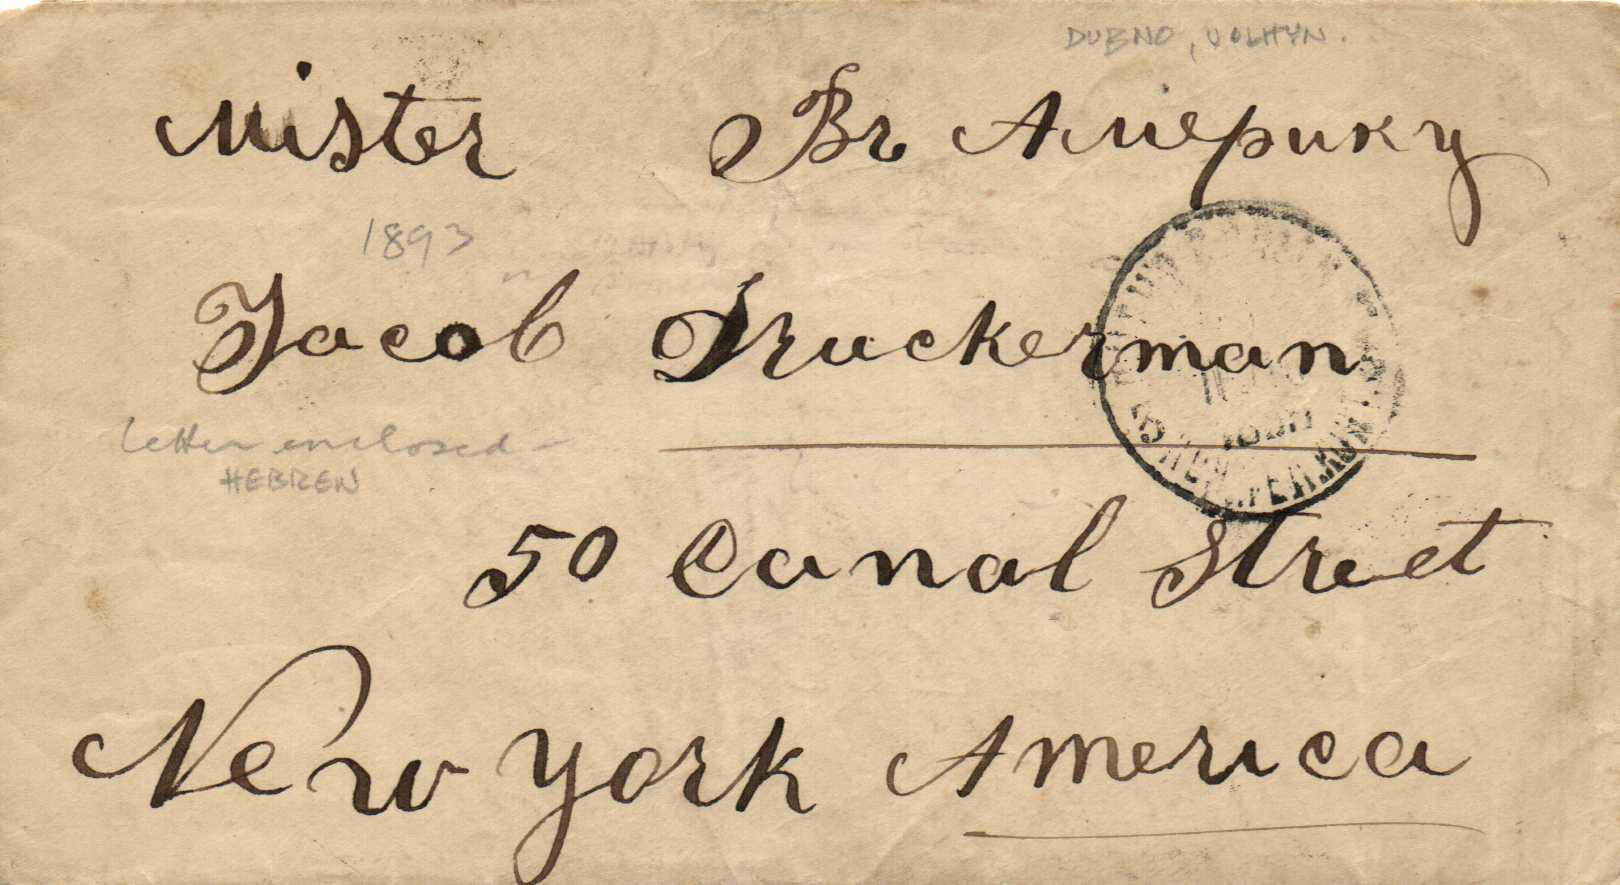 DUBNO, VOLHYN.
Mister Въ Америку
1893
Jacob Druckerman
letter enclosed -
HEBREW
50 Canal Street
New York America